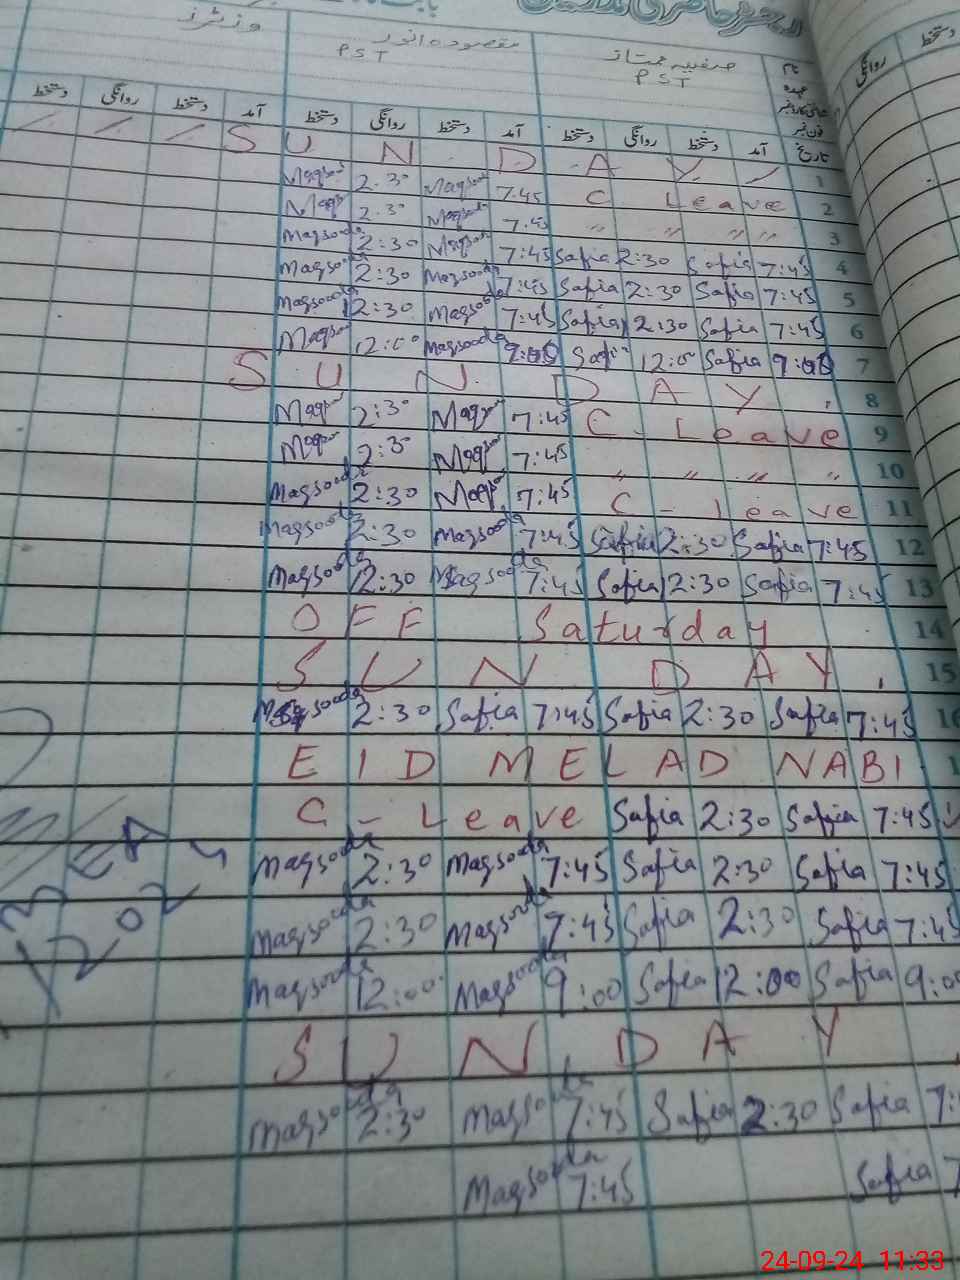 رجسٹر حاضری مدرسین
نام صفیہ ممتاز مقصودہ انور وزیٹرز
عہدہ PST PST
شناختی کارڈ نمبر
فون نمبر
تاریخ آمد دستخط روانگی دستخط آمد دستخط روانگی دستخط آمد دستخط روانگی دستخط
روانگی دستخط
S U N D A Y 1
Maqsood 2.30 Maqsood 7.45 C Leave 2
Maqs 2.30 Maqsood 7.45 〃 〃 〃 〃 3
Maqsooda 2:30 Maqsood 7:45 Safia 2:30 Safia 7:45 4
Maqsooda 2:30 Maqsooda 7:45 Safia 2:30 Safia 7:45 5
Maqsooda 2:30 Maqsooda 7:45 Safia 2:30 Safia 7:45 6
Maqsood 12:00 Maqsooda 9:00 Safia 12:00 Safia 9:00 7
S U N D A Y 8
Maqs 2:30 Maqs 7:45 C - Leave 9
Maqs 2:30 Maqs 7:45 〃 〃 〃 〃 10
Maqsooda 2:30 Maqs 7:45 C - leave 11
Maqsooda 2:30 Maqsooda 7:45 Safia 2:30 Safia 7:45 12
Maqsooda 2:30 Maqsooda 7:45 Safia 2:30 Safia 7:45 13
O F F Saturday 14
S U N D A Y 15
Maqsooda 2:30 Safia 7:45 Safia 2:30 Safia 7:45 16
E I D M E L A D N A B I 1
C - Leave Safia 2:30 Safia 7:45
Maqsooda 2:30 Maqsooda 7:45 Safia 2:30 Safia 7:45
Maqsooda 2:30 Maqsooda 7:45 Safia 2:30 Safia 7:45
Maqsooda 12:00 Maqsooda 9:00 Safia 12:00 Safia 9:00
S U N D A Y
Maqsooda 2:30 Maqsooda 7:45 Safia 2:30 Safia 7:
Maqsooda 7:45 Safia 7
MEA
24-09-24 11:33